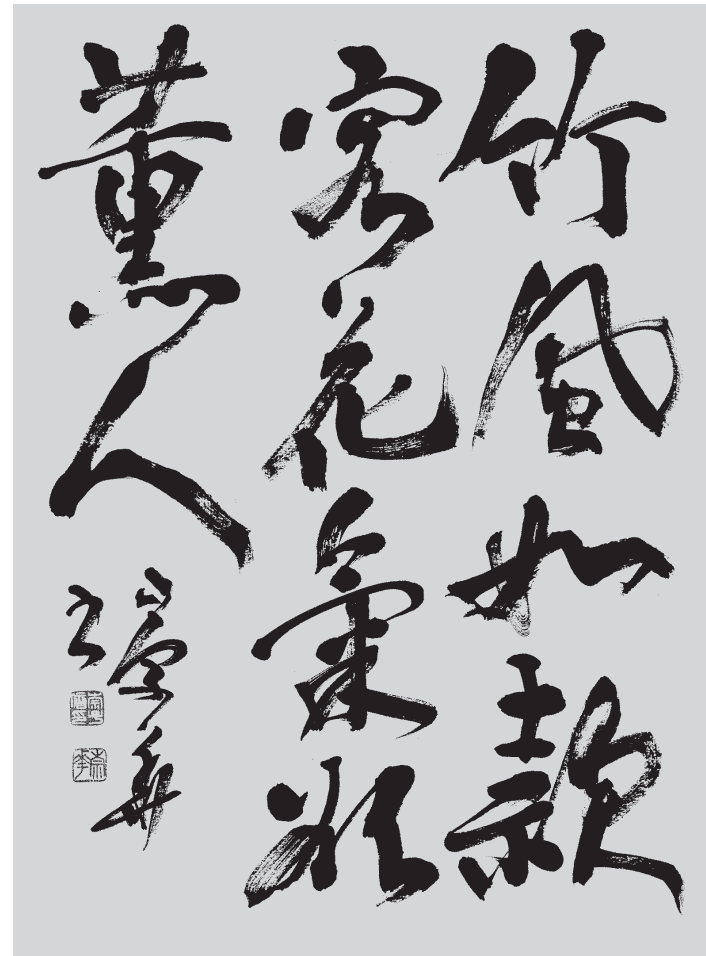 竹風如款
客花氣欲
薰人